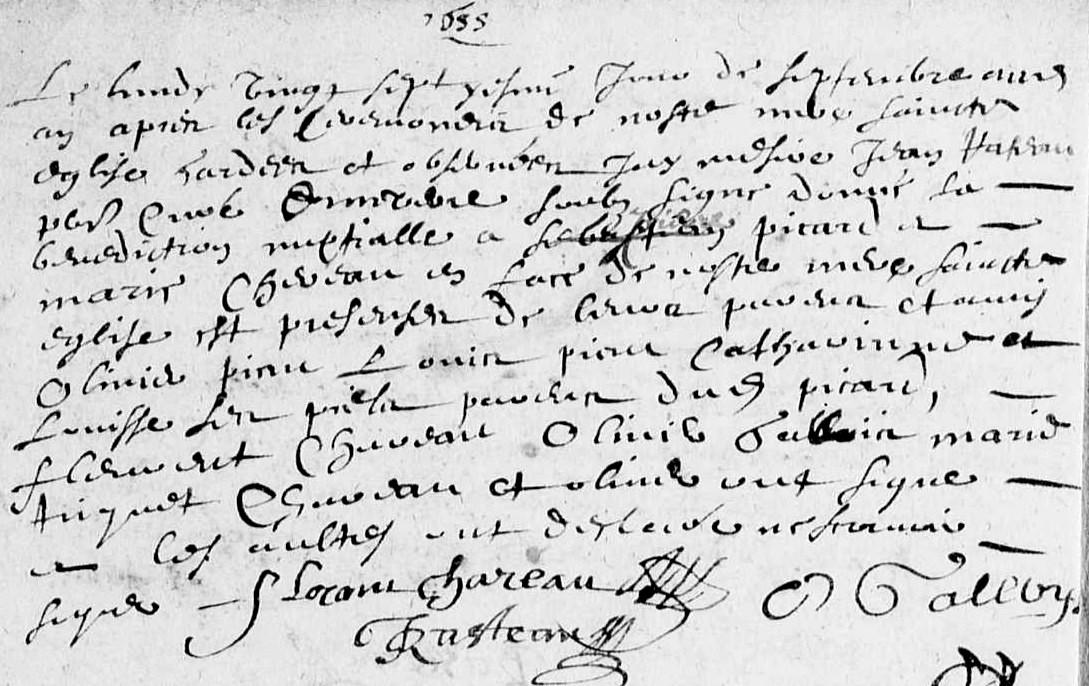 1655
Le lundy vingt septiesme jour de septembre aud
an apres les ceremoneis de nostre mere saincte
eglise gardees et observees jay messire Jean Rateau
pbr soubs signe donne la
benediction nuptialle a picard et
marie Chereau en face de nostre mere saincte
eglise est presenses de leurs parens et amis
Olivier picau Louis picau Catharinne et
Louisse les parens dud picard,
florent Chereau Olivier Tallvois marie
turquet Chereau et olivier ont signe
et les aultres ont desclare ne scavoir
signer florant chareau O Tallvoys
Rasteau